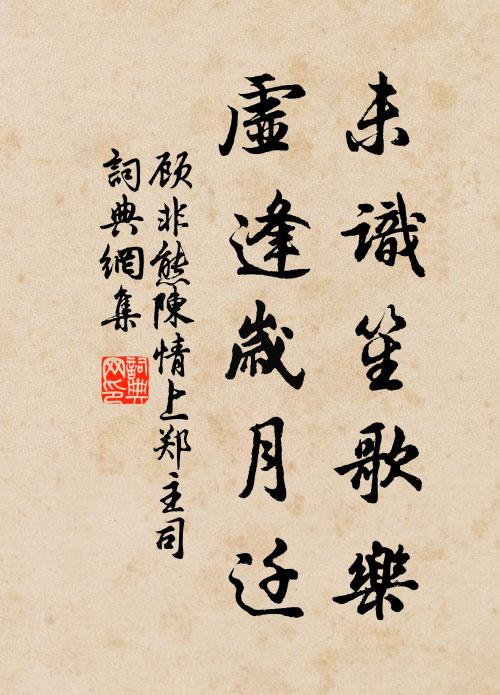 未識笙歌樂
虛逢歲月迁
顾非熊陳情上郑主司
詞典網集
詞典网印